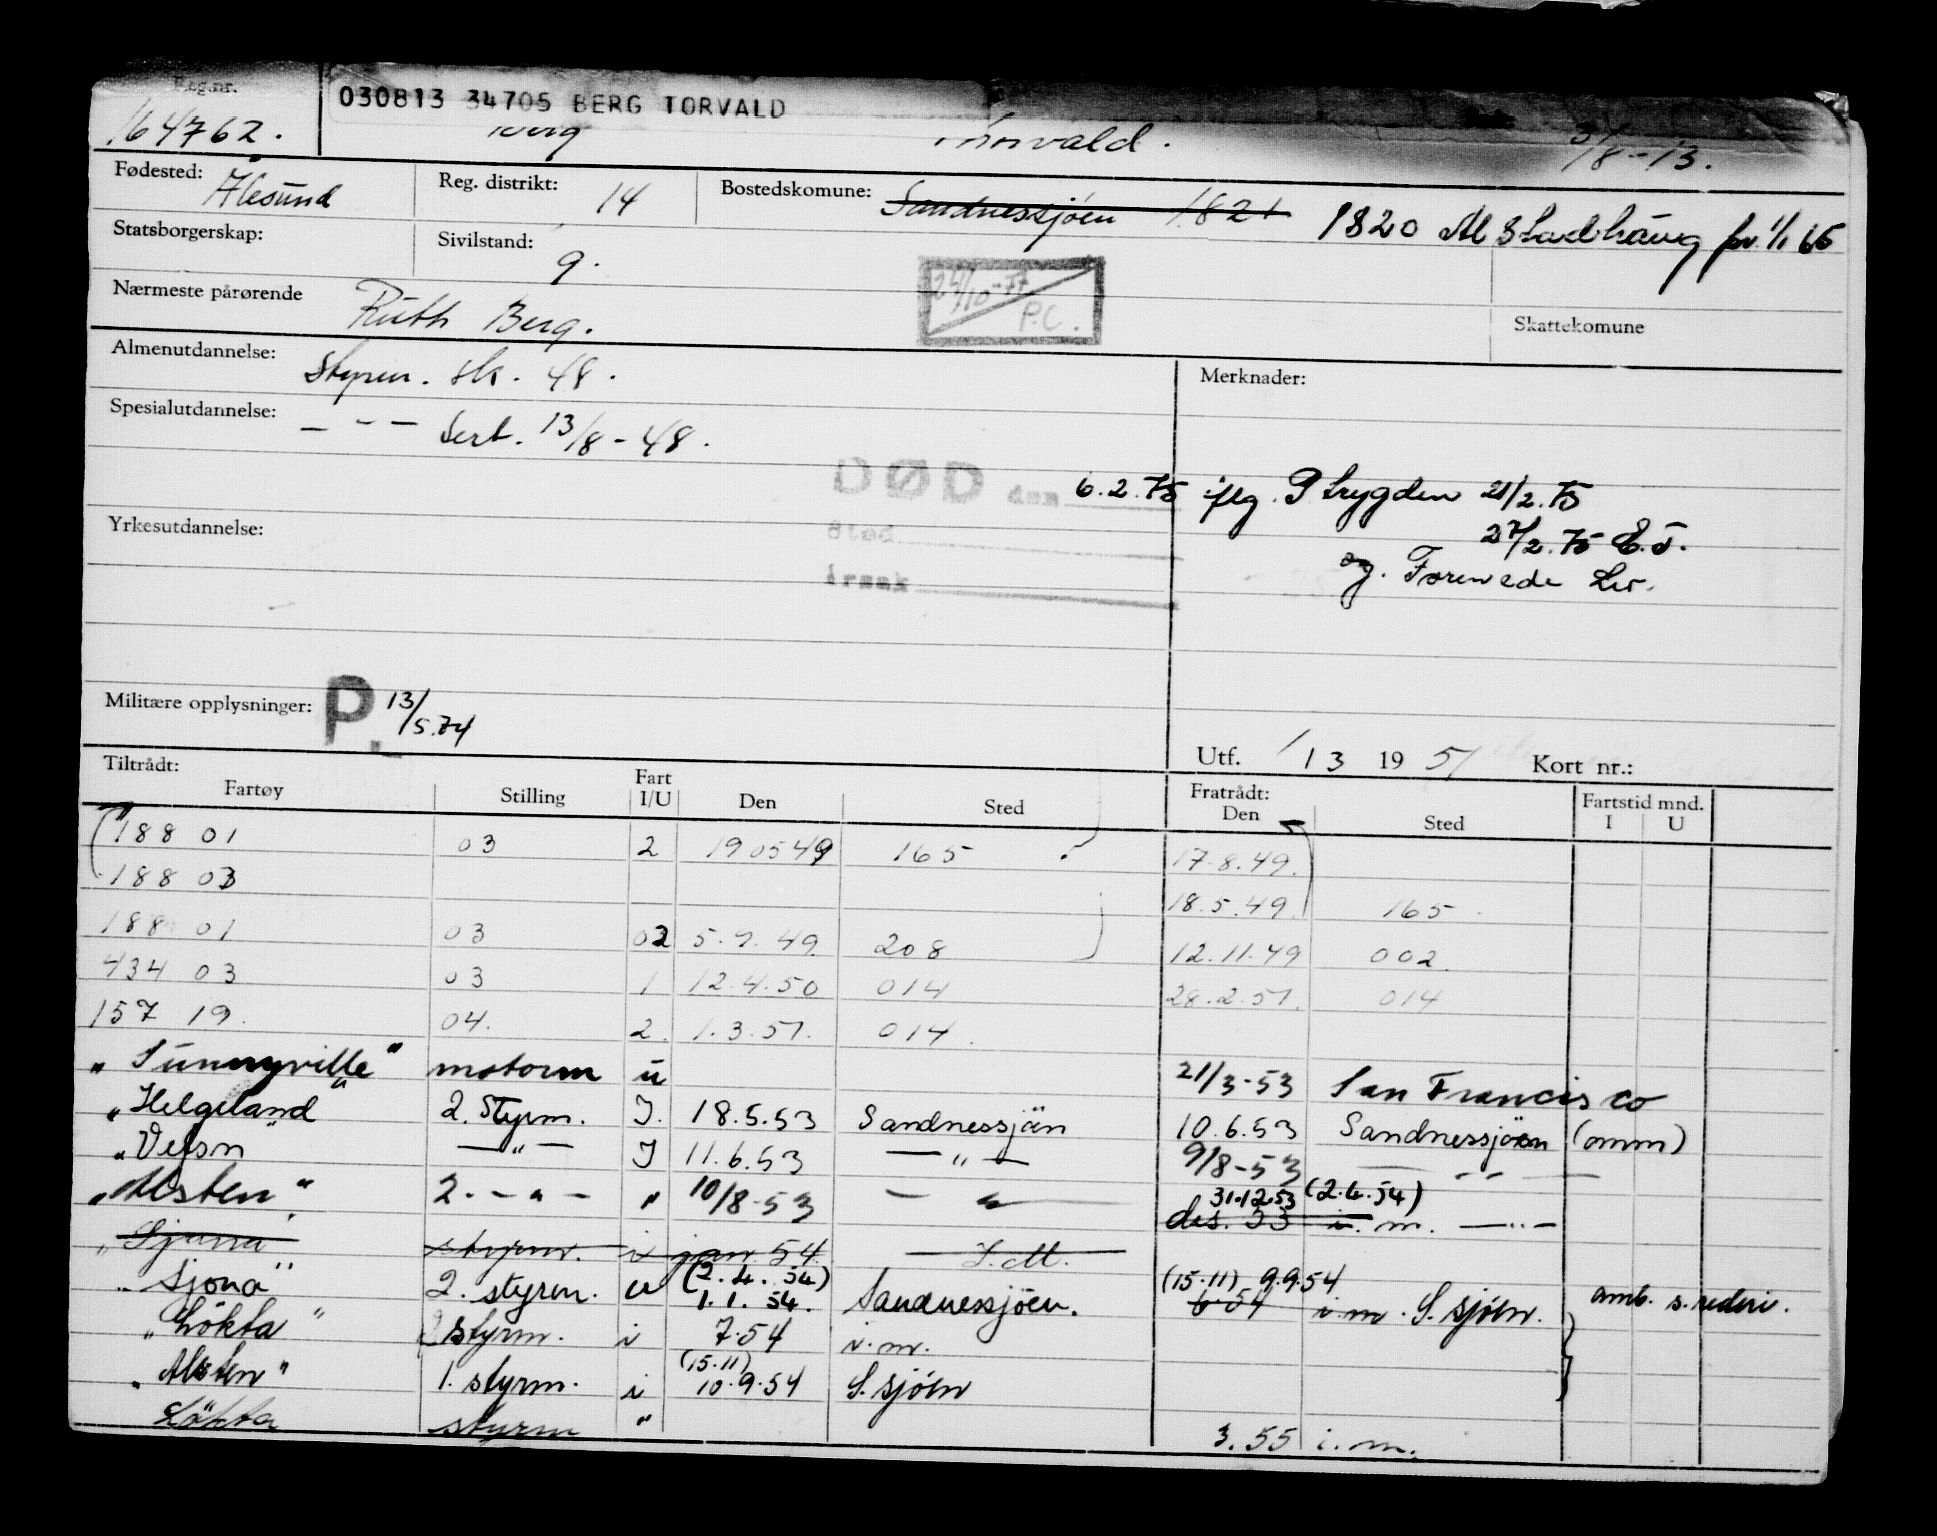 Reg.nr.
030813 34705 BERG TORVALD
164762. Berg Thorvald. 3/8-13.
Fødested: Ålesund Reg. distrikt: 14 Bostedskomune: Sandnessjöen 1821 1820 Alstadhaug fr. 1/1 65
Statsborgerskap: Sivilstand: g.
24/10-77 P.C.
Nærmeste pårørende Ruth Berg. Skattekomune
Almenutdannelse: Styrm. sk. 48. Merknader:
Spesialutdannelse: — " — Sert. 13/8-48.
DØD den 6.2.75 iflg. P trygden 21/2.75
Sted 27/2.75 E.J.
Yrkesutdannelse:
årsak og.
Militære opplysninger: P. 13/5.74
Utf. 1/3 1951 Kort nr.:
Tiltrådt: Fart Fratrådt: Fartstid mnd.
Fartøy Stilling I/U Den Sted Den Sted I U
188 01 03 2 190549 165 17.8.49.
188 03 18.5.49. 165
188 01 03 02 5.7.49. 208 12.11.49 002
434 03 03 1 12.4.50 014 28.2.51. 014
157 19. 04. 2. 1.3.51. 014.
"Sunnyville" motorm u 21/3-53 San Francisco
"Helgeland" 2. Styrm. I. 18.5.53 Sandnessjön 10.6.53 Sandnessjöen (omm)
"Vefsn" — " — I 11.6.53 — " — 9/8-53 — " —
"Alsten" 2. - " - " 10/8-53 — " — 31.12.53 (2.4.54)
des. 53 i.m. — " —
"Sjona" styrm. i jan 54. I.M.
"Sjona" 2. styrm. u (2.4.54) 1.1.54. Sandnessjöen. (15.11) 9.9.54 6-54 i.m. S.sjöen. omb. s. rederi.
"Lökta" styrm. i 7.54 i.m.
"Alsten" 1. styrm. i (15.11) 10.9.54 S.sjöen
Lökta styrm " 3.55 i.m.